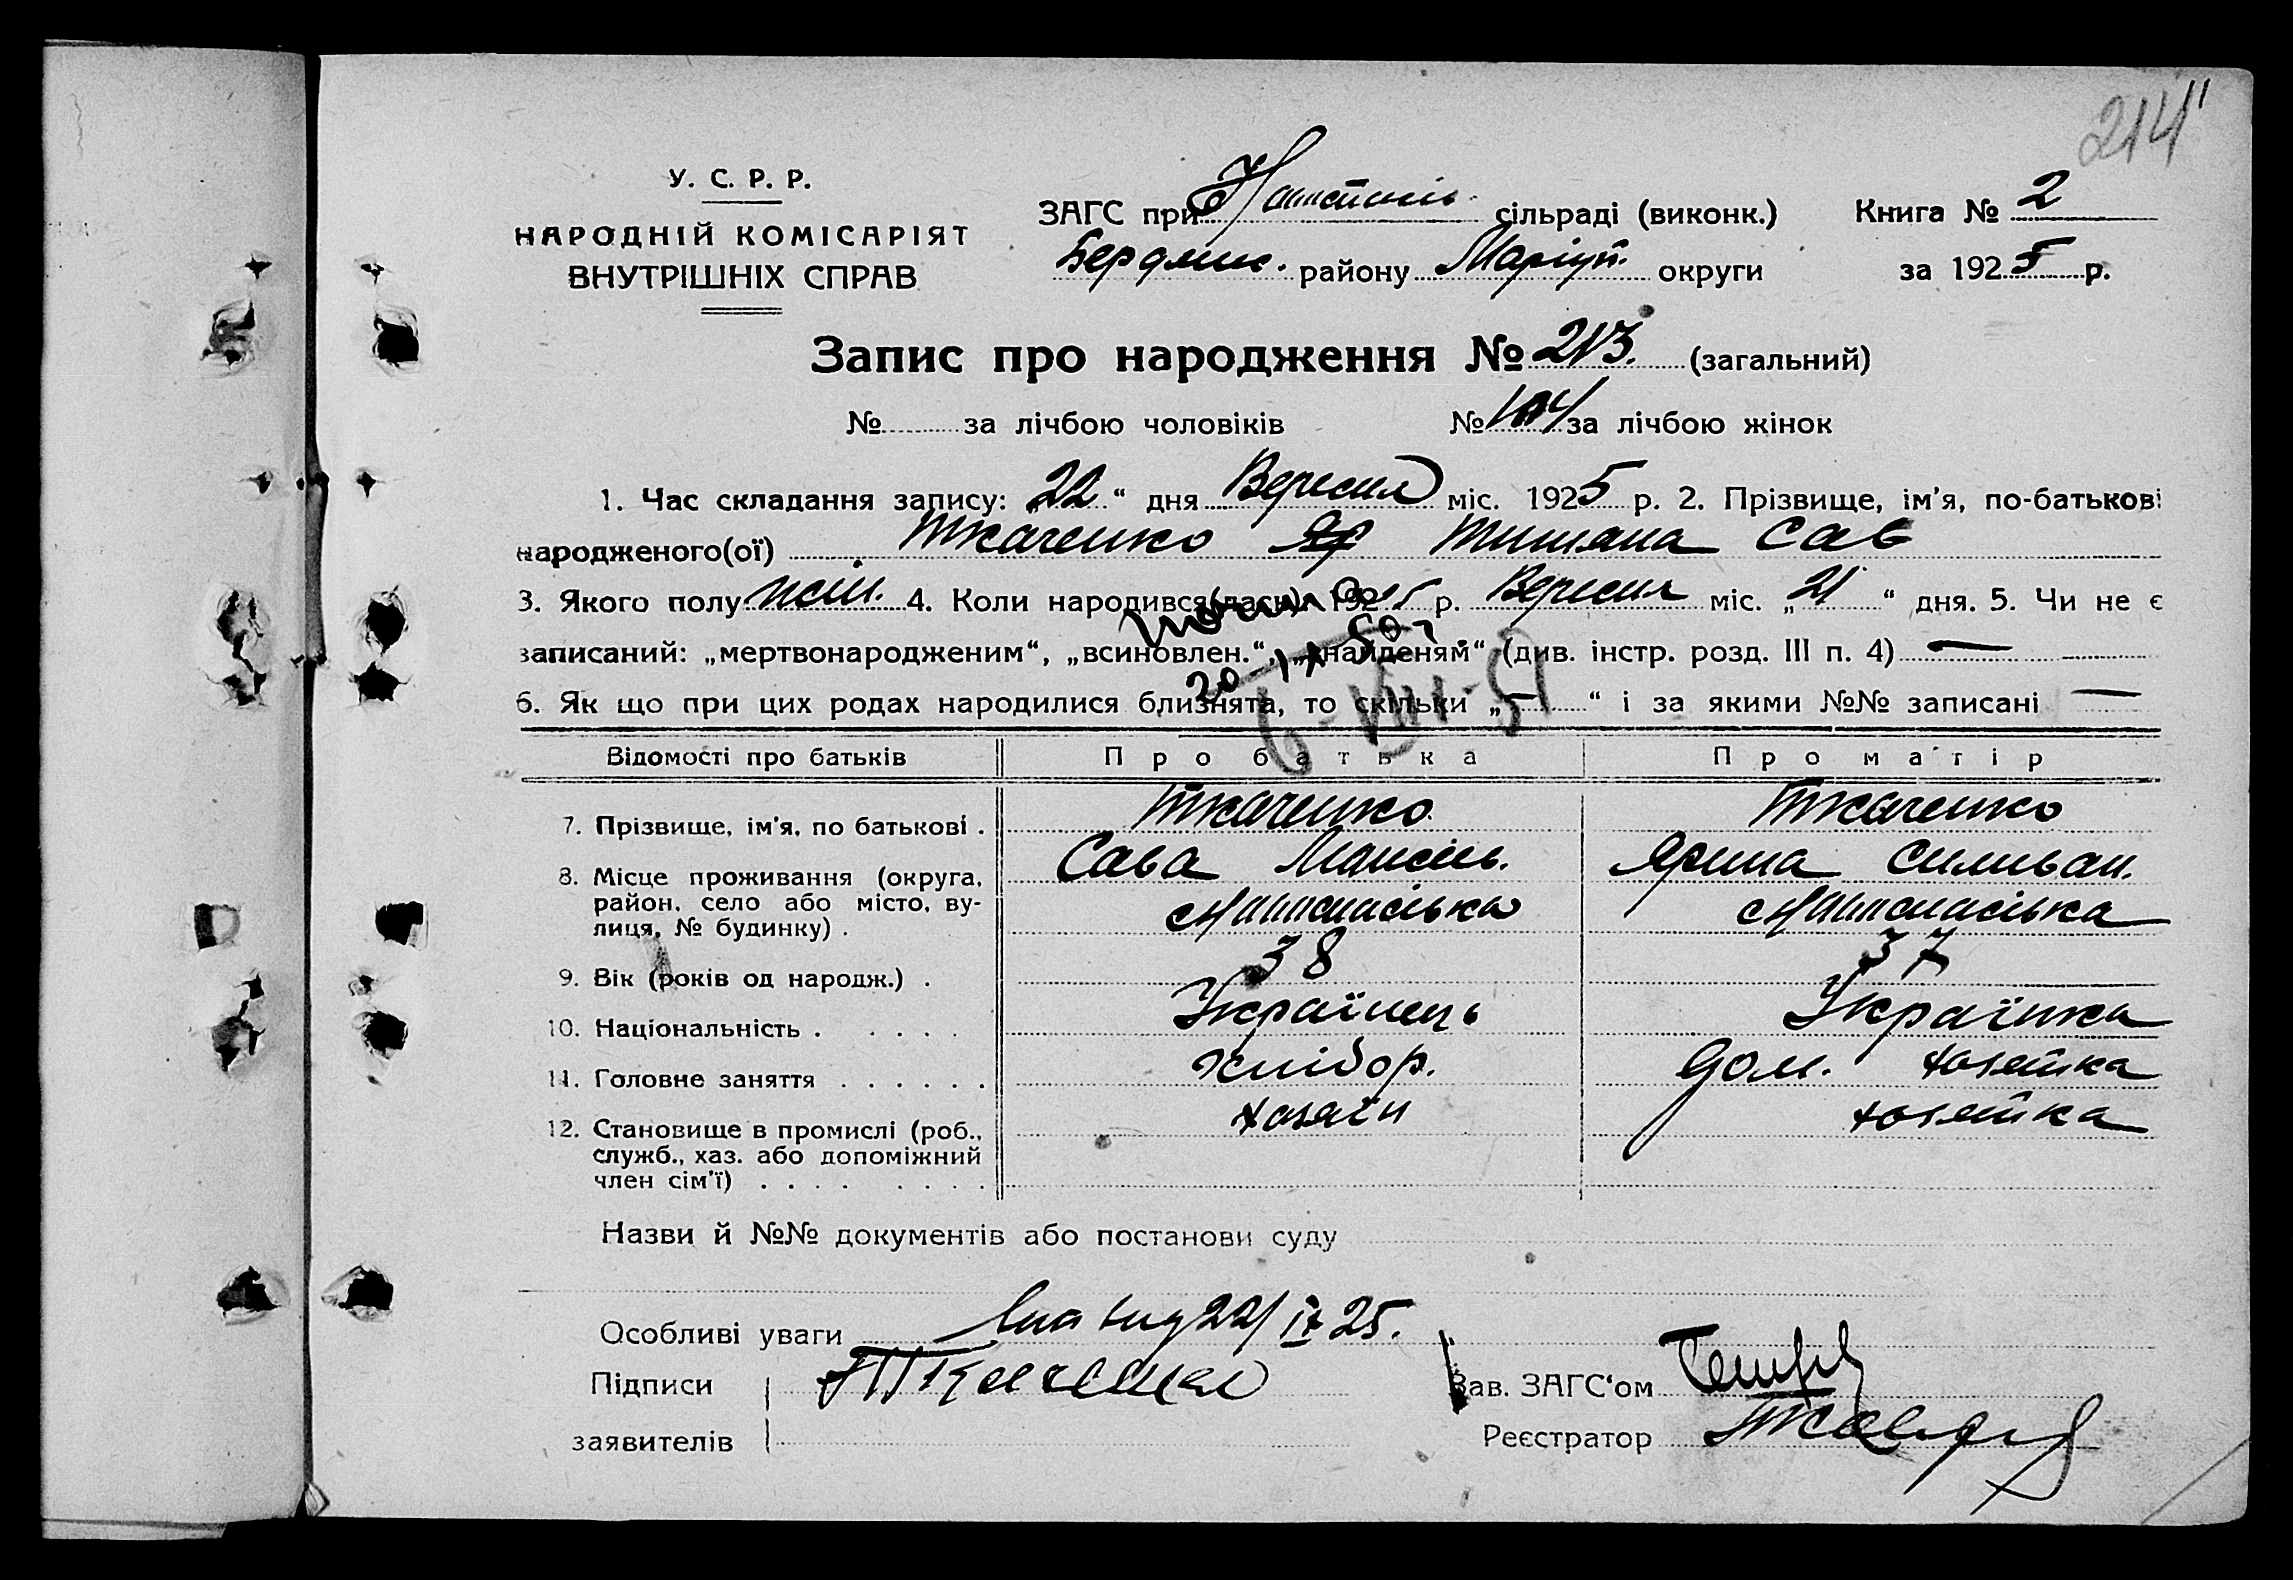 214
У. С. Р. Р.
НАРОДНІЙ КОМІСАРІЯТ
ВНУТРІШНІХ СПРАВ
ЗАГС при сільраді (виконк.) Книга № 2
Бердянс. району Маріуп. округи за 1925 р.
Запис про народження № 213. (загальний)
№ за лічбою чоловіків № 104 за лічбою жінок
1. Час складання запису: „22“ дня Вересня міс. 1925 р. 2. Прізвище, ім'я, по-батькові
народженого(ої) Ткаченко Яр Титяна Сав
3. Якого полу жін. 4. Коли народився(лась): 1925 р. Вересня міс. „21“ дня. 5. Чи не є
записаний: „мертвонародженим“, „всиновлен.“, „знайденям“ (див. інстр. розд. III п. 4) —
6. Як що при цих родах народилися близнята, то скільки „—“ і за якими №№ записані —
6-VIII-51
Відомості про батьків Про батька Про матір
7. Прізвище, ім'я, по батькові . Ткаченко Ткаченко
Сава Ярина Сильван.
8. Місце проживання (округа,
район, село або місто, ву-
лиця, № будинку) .
9. Вік (років од народж.) . 38 37
10. Національність . . . . Українець Українка
11. Головне заняття . . . . . . Хлібор. Дом. хозяйка
12. Становище в промислі (роб.,
служб., хаз. або допоміжний
член сім'ї) . . . . . . . . хозяїн хозяйка
Назви й №№ документів або постанови суду
Особливі уваги 22/IX 25.
Підписи Ткаченко Зав. ЗАГС'ом
заявителів Реєстратор